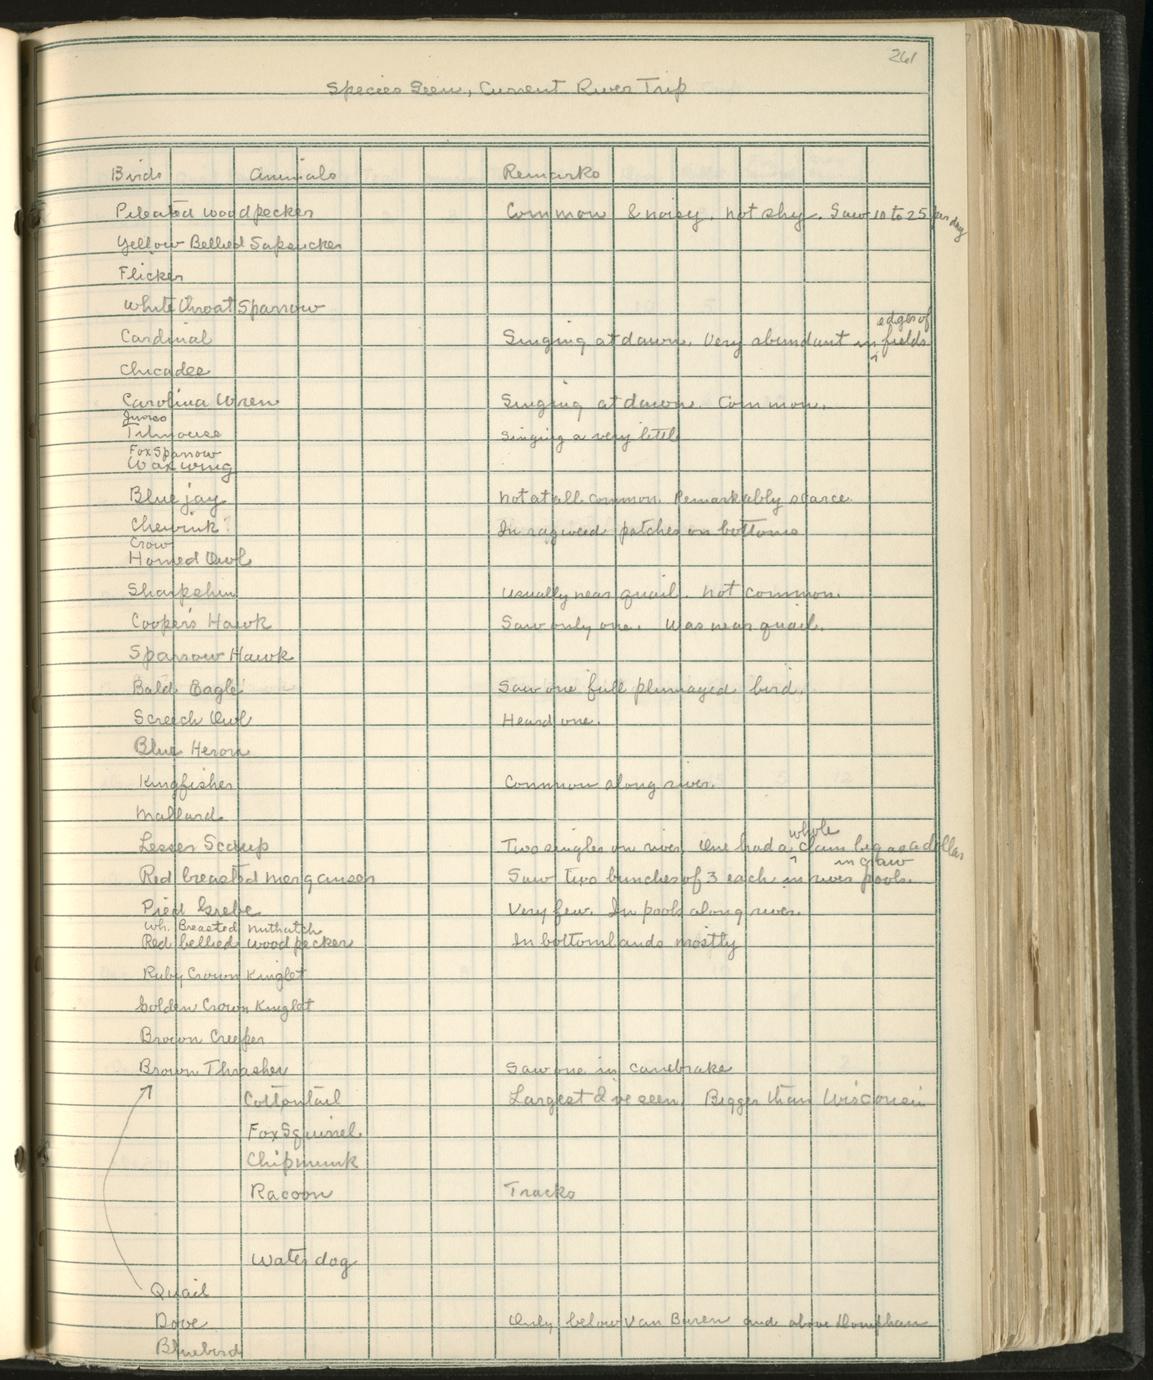 261
Species Seen, Current River Trip
Birds Animals Remarks
Pileated woodpecker Common & noisy, not shy. Saw 10 to 25 per day
Yellow Bellied Sapsucker
Flicker
White throat Sparrow
edges of
Cardinal Singing at dawn. Very abundant in ^ fields
Chicadee
Carolina Wren Singing at dawn. Common.
Junco
Titmouse Singing a very little
Fox Sparrow
Waxwing
Blue jay Not at all common. Remarkably scarce
Chewink? In ragweed patches on bottoms
Crow
Horned Owl
Sharpshin Usually near quail. Not common.
Cooper's Hawk Saw only one. Was near quail.
Sparrow Hawk
Bald Eagle Saw one full plumaged bird.
Screech Owl Heard one.
Blue Heron
Kingfisher Common along river.
Mallard
whole
Lesser Scaup Two singles on river. One had a ^ clam big as a dollar
in craw
Red breasted merganser Saw two bunches of 3 each in river pools.
Pied Grebe Very few. In pools along river.
Wh. Breasted nuthatch
Red bellied woodpecker In bottomlands mostly
Ruby Crown Kinglet
Golden Crown Kinglet
Brown Creeper
Brown Thrasher Saw one in canebrake
Cottontail Largest I've seen. Bigger than Wisconsin
Fox Squirrel
Chipmunk
Racoon Tracks
Water dog
Quail
Dove Only below Van Buren and above Doniphan
Bluebird